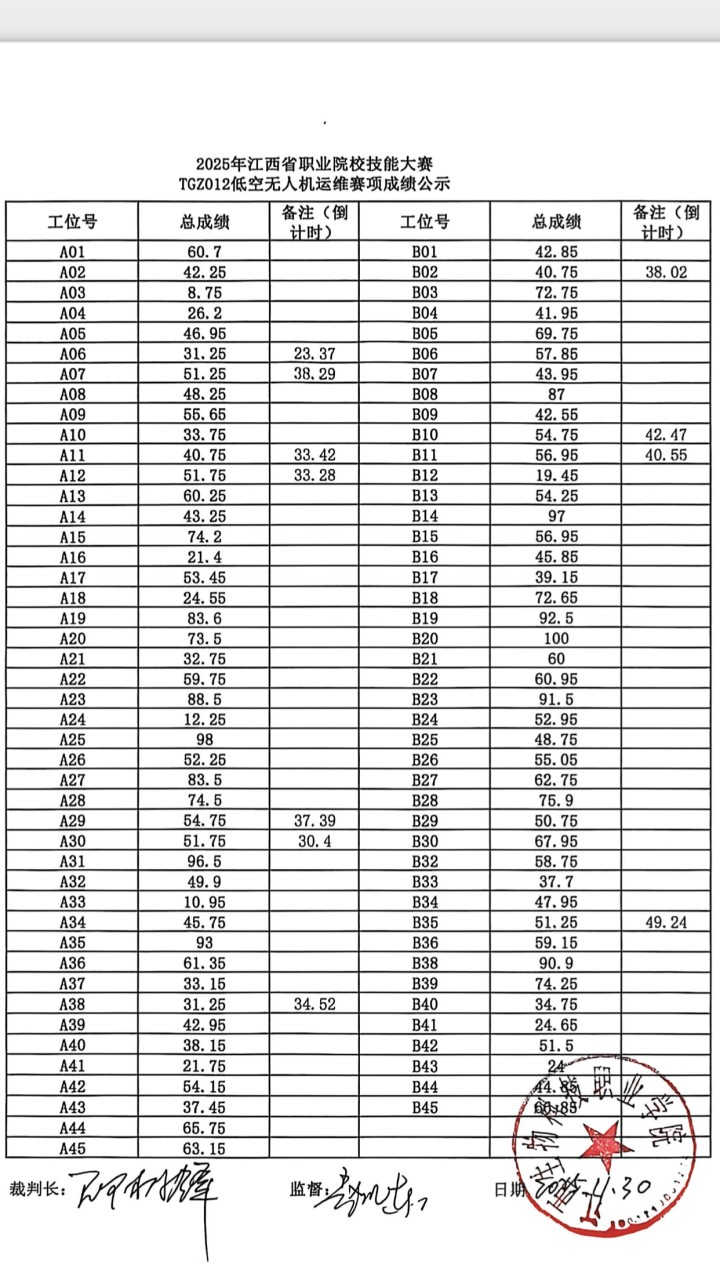 2025年江西省职业院校技能大赛
TGZ012低空无人机运维赛项成绩公示
工位号 总成绩 备注（倒计时） 工位号 总成绩 备注（倒计时）
A01 60.7 B01 42.85
A02 42.25 B02 40.75 38.02
A03 8.75 B03 72.75
A04 26.2 B04 41.95
A05 46.95 B05 69.75
A06 31.25 23.37 B06 57.85
A07 51.25 38.29 B07 43.95
A08 48.25 B08 87
A09 55.65 B09 42.55
A10 33.75 B10 54.75 42.47
A11 40.75 33.42 B11 56.95 40.55
A12 51.75 33.28 B12 19.45
A13 60.25 B13 54.25
A14 43.25 B14 97
A15 74.2 B15 56.95
A16 21.4 B16 45.85
A17 53.45 B17 39.15
A18 24.55 B18 72.65
A19 83.6 B19 92.5
A20 73.5 B20 100
A21 32.75 B21 60
A22 59.75 B22 60.95
A23 88.5 B23 91.5
A24 12.25 B24 52.95
A25 98 B25 48.75
A26 52.25 B26 55.05
A27 83.5 B27 62.75
A28 74.5 B28 75.9
A29 54.75 37.39 B29 50.75
A30 51.75 30.4 B30 67.95
A31 96.5 B32 58.75
A32 49.9 B33 37.7
A33 10.95 B34 47.95
A34 45.75 B35 51.25 49.24
A35 93 B36 59.15
A36 61.35 B38 90.9
A37 33.15 B39 74.25
A38 31.25 34.52 B40 34.75
A39 42.95 B41 24.65
A40 38.15 B42 51.5
A41 21.75 B43 24
A42 54.15 B44 44.85
A43 37.45 B45
A44 65.75
A45 63.15
裁判长： 监督： 日期 2025.11.30
江西生物科技职业学院